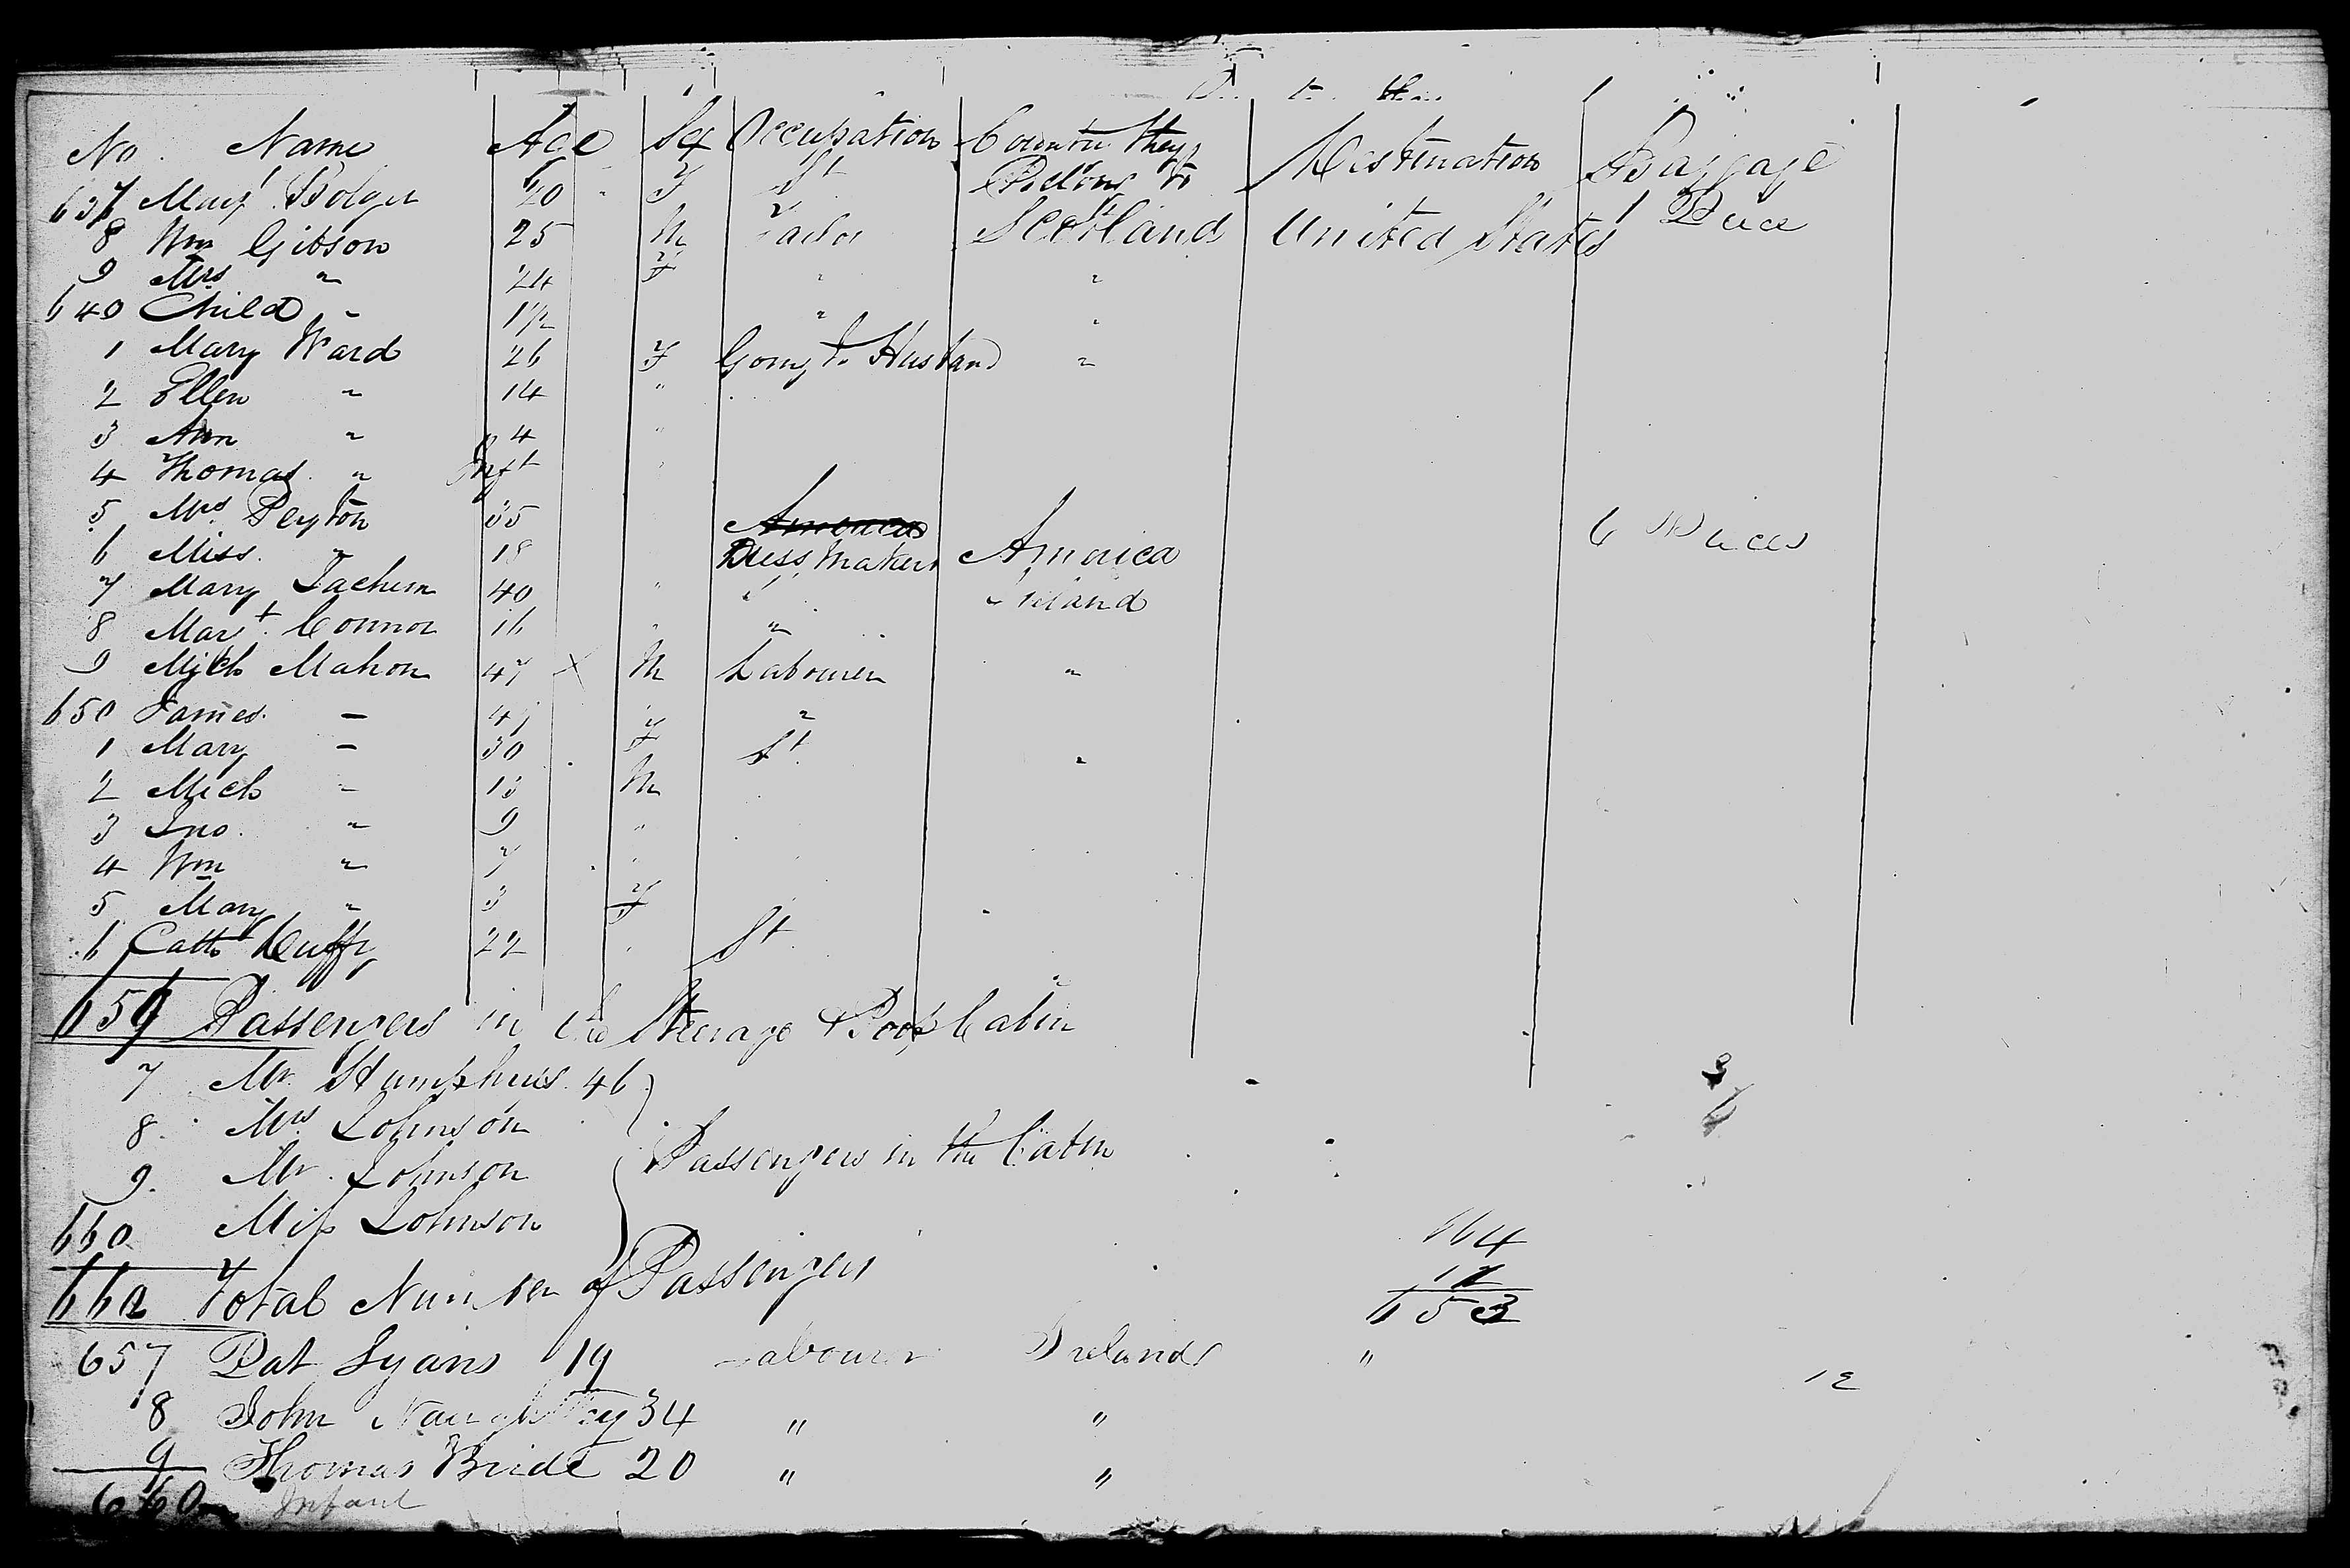 No. Name Age Sex Occupation Country they Belong to Destination Baggage
637 Mary Bolger 20 F St
8 Wm Gibson 25 M Tailor Scotland United States 1 Piece
9 Mrs " 24 F " "
640 Child " 1 1/2 " "
1 Mary Ward 26 F Going to Husband "
2 Ellen " 14 "
3 Ann " 4 "
4 Thomas " Inft "
5 Mrs Peyton 35 America 6 Pieces
6 Miss " 18 Dress Maker America
7 Mary 40 " " Ireland
8 Mart. Connor 16 " "
9 Mich Mahon 47 X M Labourer "
650 James – 47 " "
1 Mary – 30 F St "
2 Mich – 13 M
3 Jno. " 9 "
4 Wm " 7 "
5 Mary " 3 F
6 Cath Duffy 22 " St
Passengers in the Steerage & Poop Cabin
7 Mr. Humphries. 46
8. Mrs Johnson
9. Mr. Johnson Passengers in the Cabin
660 Miss Johnson
664
12
653
Total Number of Passengers
657 Pat Lyans 19 Labourer Ireland "
12
8 John Naughtey 34 " "
9 Thomas Bride 20 " "
660 Infant